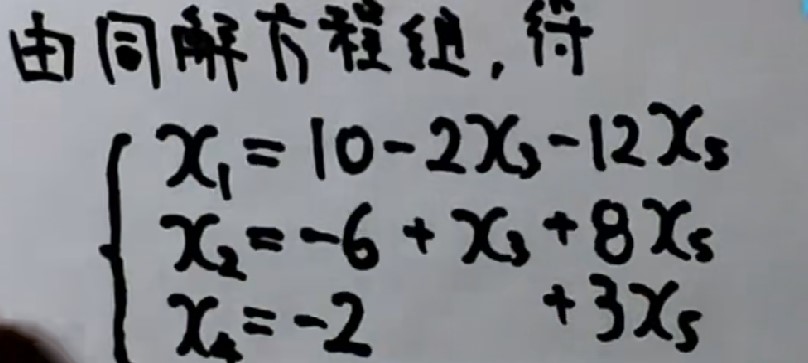 由同解方程组,得
x₁=10-2x₃-12x₅
x₂=-6+x₃+8x₅
x₄=-2 +3x₅